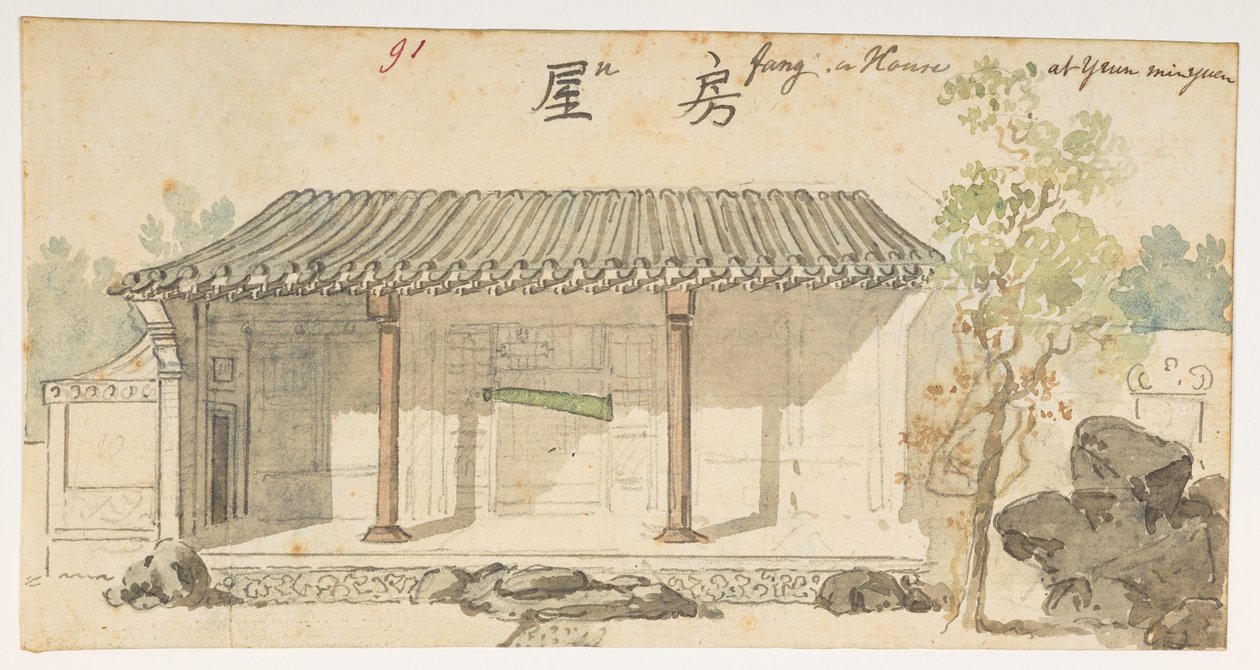 91
屋 u 房 fang . a House at minyuen